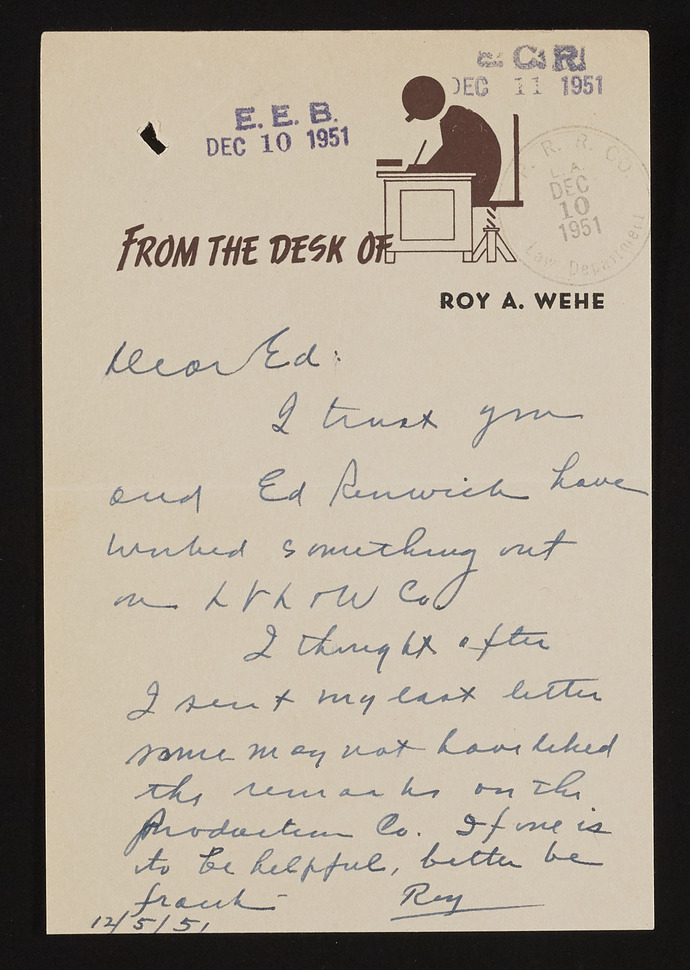 E. C. R.
DEC 11 1951
E. E. B.
DEC 10 1951
R. R. CO.
L.A.
DEC
10
1951
Law Department
FROM THE DESK OF
ROY A. WEHE
Dear Ed:
I trust you
and Ed Renwick have
worked something out
on L V L & W Co.
I thought after
I sent my last letter
some may not have liked
the remarks on the
Production Co. If one is
to be helpful, better be
frank -
Roy
12/5/51